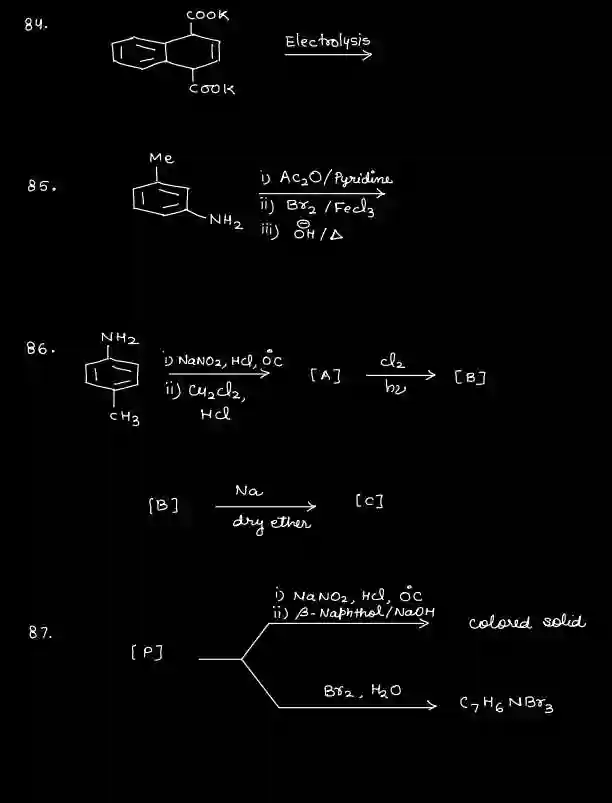 84.
COOK
COOK
Electrolysis
85.
Me
NH2
i) Ac2O/Pyridine
ii) Br2/FeCl3
iii) ⊖OH/Δ
86.
NH2
CH3
i) NaNO2, HCl, 0°C
ii) Cu2Cl2,
HCl
[A]
Cl2
hν
[B]
[B]
Na
dry ether
[C]
87.
[P]
i) NaNO2, HCl, 0°C
ii) β-Naphthol/NaOH
colored solid
Br2, H2O
C7H6NBr3